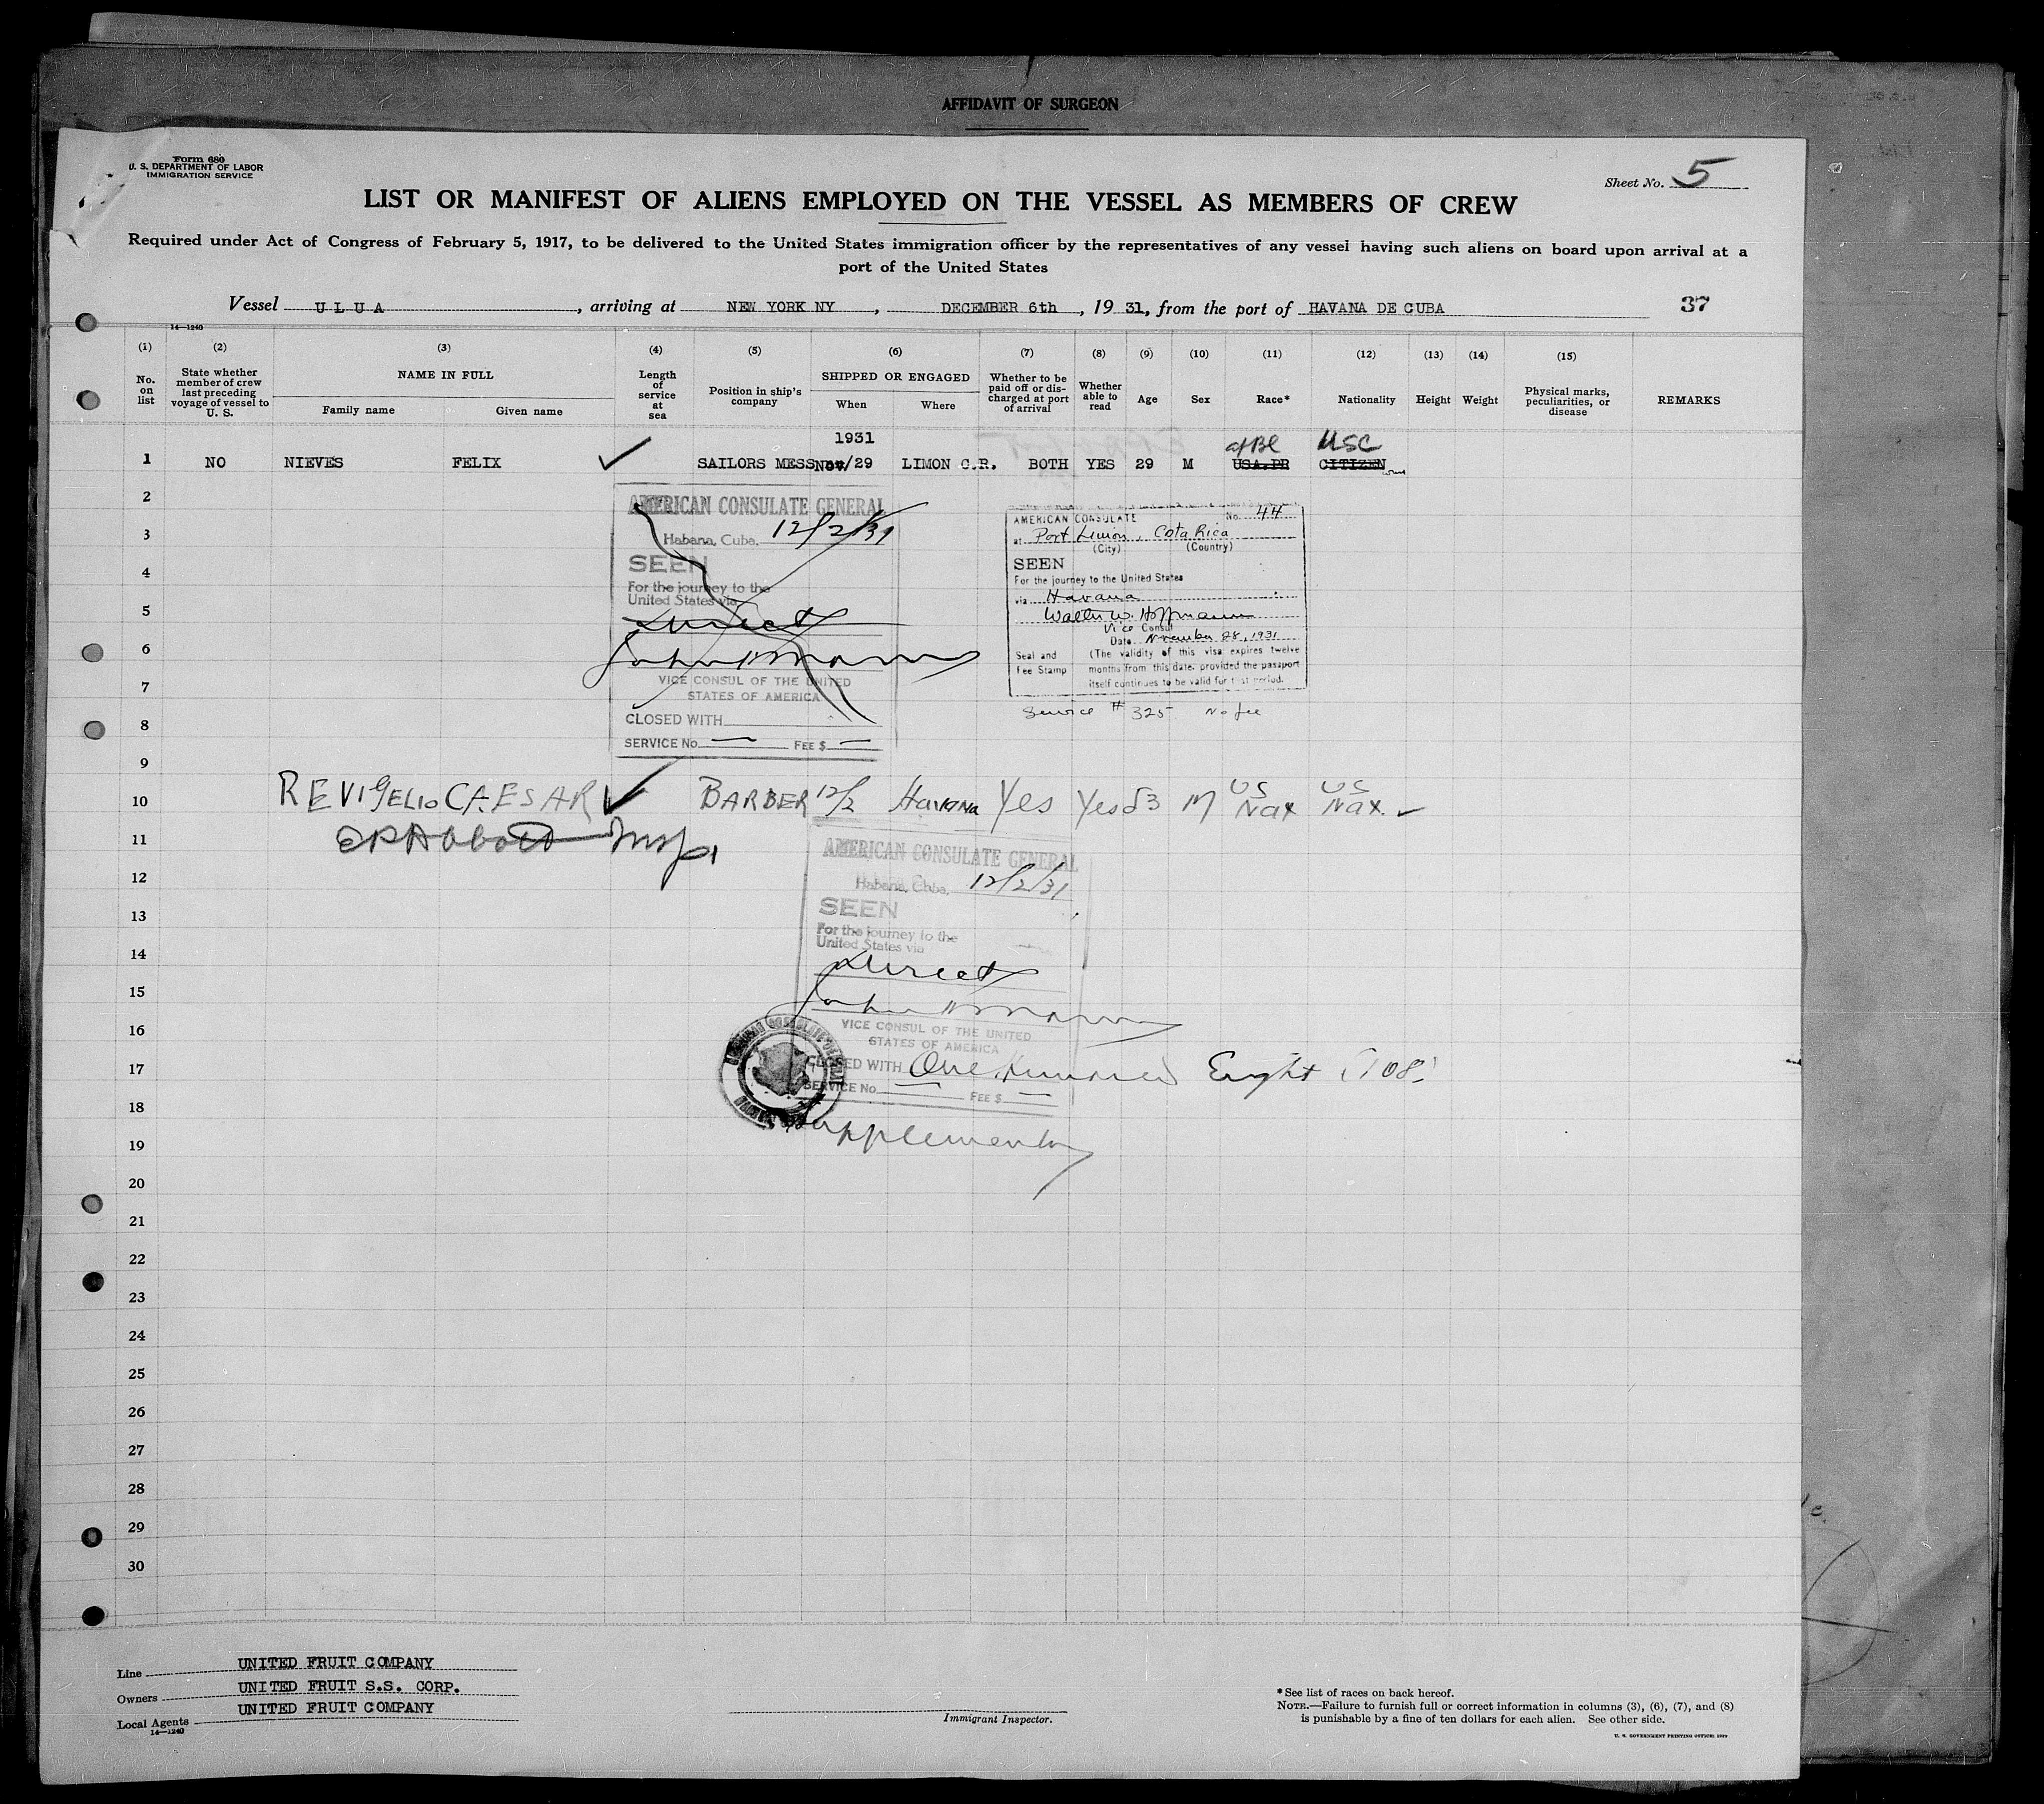 AFFIDAVIT OF SURGEON
Form 680
U. S. DEPARTMENT OF LABOR
IMMIGRATION SERVICE
Sheet No. 5
LIST OR MANIFEST OF ALIENS EMPLOYED ON THE VESSEL AS MEMBERS OF CREW
Required under Act of Congress of February 5, 1917, to be delivered to the United States immigration officer by the representatives of any vessel having such aliens on board upon arrival at a
port of the United States
Vessel ULUA, arriving at NEW YORK NY, DECEMBER 6th, 1931, from the port of HAVANA DE CUBA 37
14—1240
(1) (2) (3) (4) (5) (6) (7) (8) (9) (10) (11) (12) (13) (14) (15)
No. on list
State whether member of crew last preceding voyage of vessel to U. S.
NAME IN FULL
Family name Given name
Length of service at sea
Position in ship's company
SHIPPED OR ENGAGED
When Where
Whether to be paid off or discharged at port of arrival
Whether able to read
Age
Sex
Race*
Nationality
Height
Weight
Physical marks, peculiarities, or disease
REMARKS
1931 USC
1 NO NIEVES FELIX ✓ SAILORS MESS Nov/29 LIMON C.R. BOTH YES 29 M USA.PR CITIZEN
2
3
4
5
6
7
8
9
AMERICAN CONSULATE GENERAL
Habana, Cuba, 12/2/31
SEEN
For the journey to the
United States via
Direct
VICE CONSUL OF THE UNITED
STATES OF AMERICA
CLOSED WITH
SERVICE No. — FEE $ —
AMERICAN CONSULATE No. 44
at Port Limon, Costa Rica
(City) (Country)
SEEN
For the journey to the United States
via Havana
Walter W. Hoffmann
Vice Consul
Date November 28, 1931
Seal and Fee Stamp
(The validity of this visa expires twelve
months from this date, provided the passport
itself continues to be valid for that period.
Service # 325 No fee
10 REVIGELIO CAESAR ✓ BARBER 12/2 Havana Yes Yes 53 M US Nat US Nat. ✓
11
12
13
14
15
16
17
18
19
20
21
22
23
24
25
26
27
28
29
30
AMERICAN CONSULATE GENERAL
Habana, Cuba, 12/2/31
SEEN
For the journey to the
United States via
Direct
VICE CONSUL OF THE UNITED
STATES OF AMERICA
CLOSED WITH One Hundred Eight (108)
SERVICE No. — FEE $ —
Supplementary
Line UNITED FRUIT COMPANY
Owners UNITED FRUIT S.S. CORP.
Local Agents UNITED FRUIT COMPANY
14—1240
Immigrant Inspector.
*See list of races on back hereof.
NOTE.—Failure to furnish full or correct information in columns (3), (6), (7), and (8)
is punishable by a fine of ten dollars for each alien. See other side.
U. S. GOVERNMENT PRINTING OFFICE: 1929